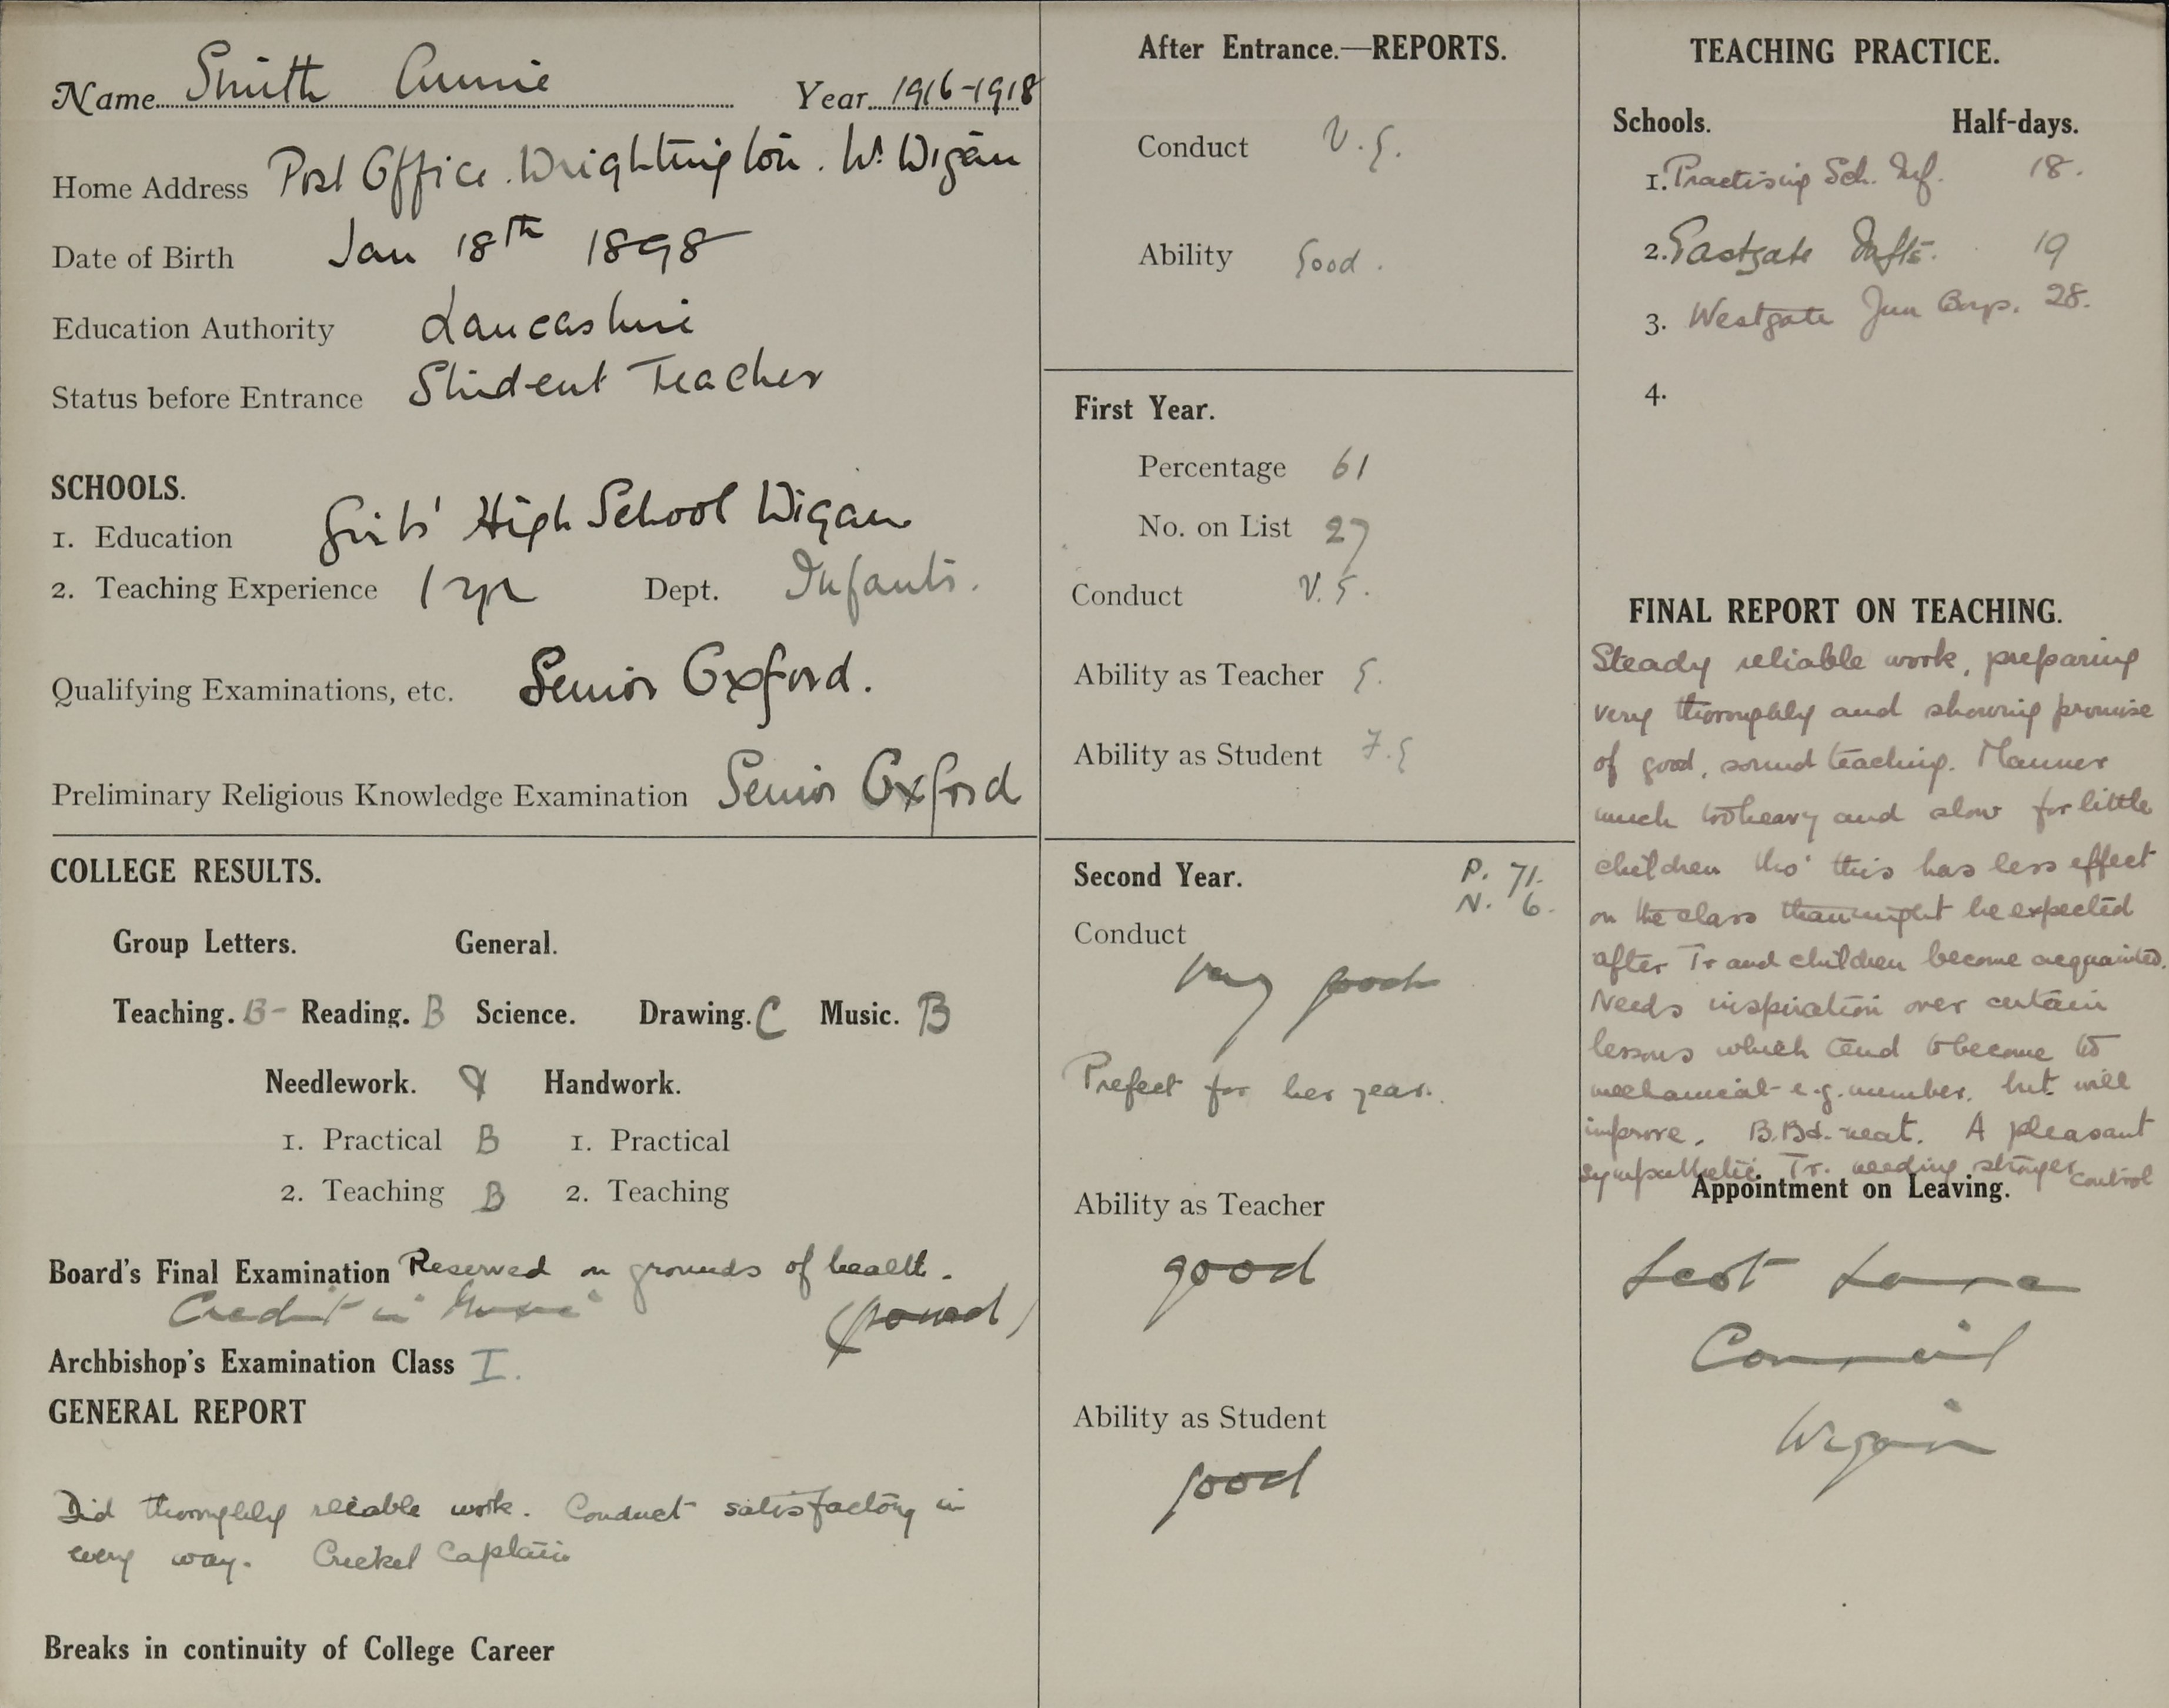 Name Smith Annie Year 1916-1918
Home Address Post Office. Wrightington. Nr Wigan
Date of Birth Jan 18th 1898
Education Authority Lancashire
Status before Entrance Student Teacher
SCHOOLS.
1. Education Girls' High School Wigan
2. Teaching Experience 1 yr Dept. Infants.
Qualifying Examinations, etc. Senior Oxford.
Preliminary Religious Knowledge Examination Senior Oxford
COLLEGE RESULTS.
Group Letters. General.
Teaching. B- Reading. B Science. Drawing. C Music. B
Needlework. Handwork.
1. Practical B 1. Practical
2. Teaching B 2. Teaching
Board's Final Examination Reserved on grounds of health.
Credit in Music (passed)
Archbishop's Examination Class I.
GENERAL REPORT
Did thoroughly reliable work. Conduct satisfactory in
every way. Cricket Captain
Breaks in continuity of College Career
After Entrance.—REPORTS.
Conduct V.G.
Ability Good.
First Year.
Percentage 61
No. on List 27
Conduct V.G.
Ability as Teacher G.
Ability as Student F.G
Second Year. P. 71.
N. 6.
Conduct
Very good
Prefect for her year.
Ability as Teacher
good
Ability as Student
good
TEACHING PRACTICE.
Schools. Half-days.
1. Practising Sch. Inf. 18.
2. Eastgate Infts. 19
3. Westgate Jun Boys. 28.
4.
FINAL REPORT ON TEACHING.
Steady reliable work, preparing
very thoroughly and showing promise
of good, sound teaching. Manner
much too heavy and slow for little
children tho' this has less effect
on the class than might be expected
after Tr and children become acquainted.
Needs inspiration over certain
lessons which tend to become too
mechanical - e.g. number. but will
improve. B.Bd. neat. A pleasant
sympathetic Tr. needing stronger control
Appointment on Leaving.
Lane
Council
Wigan